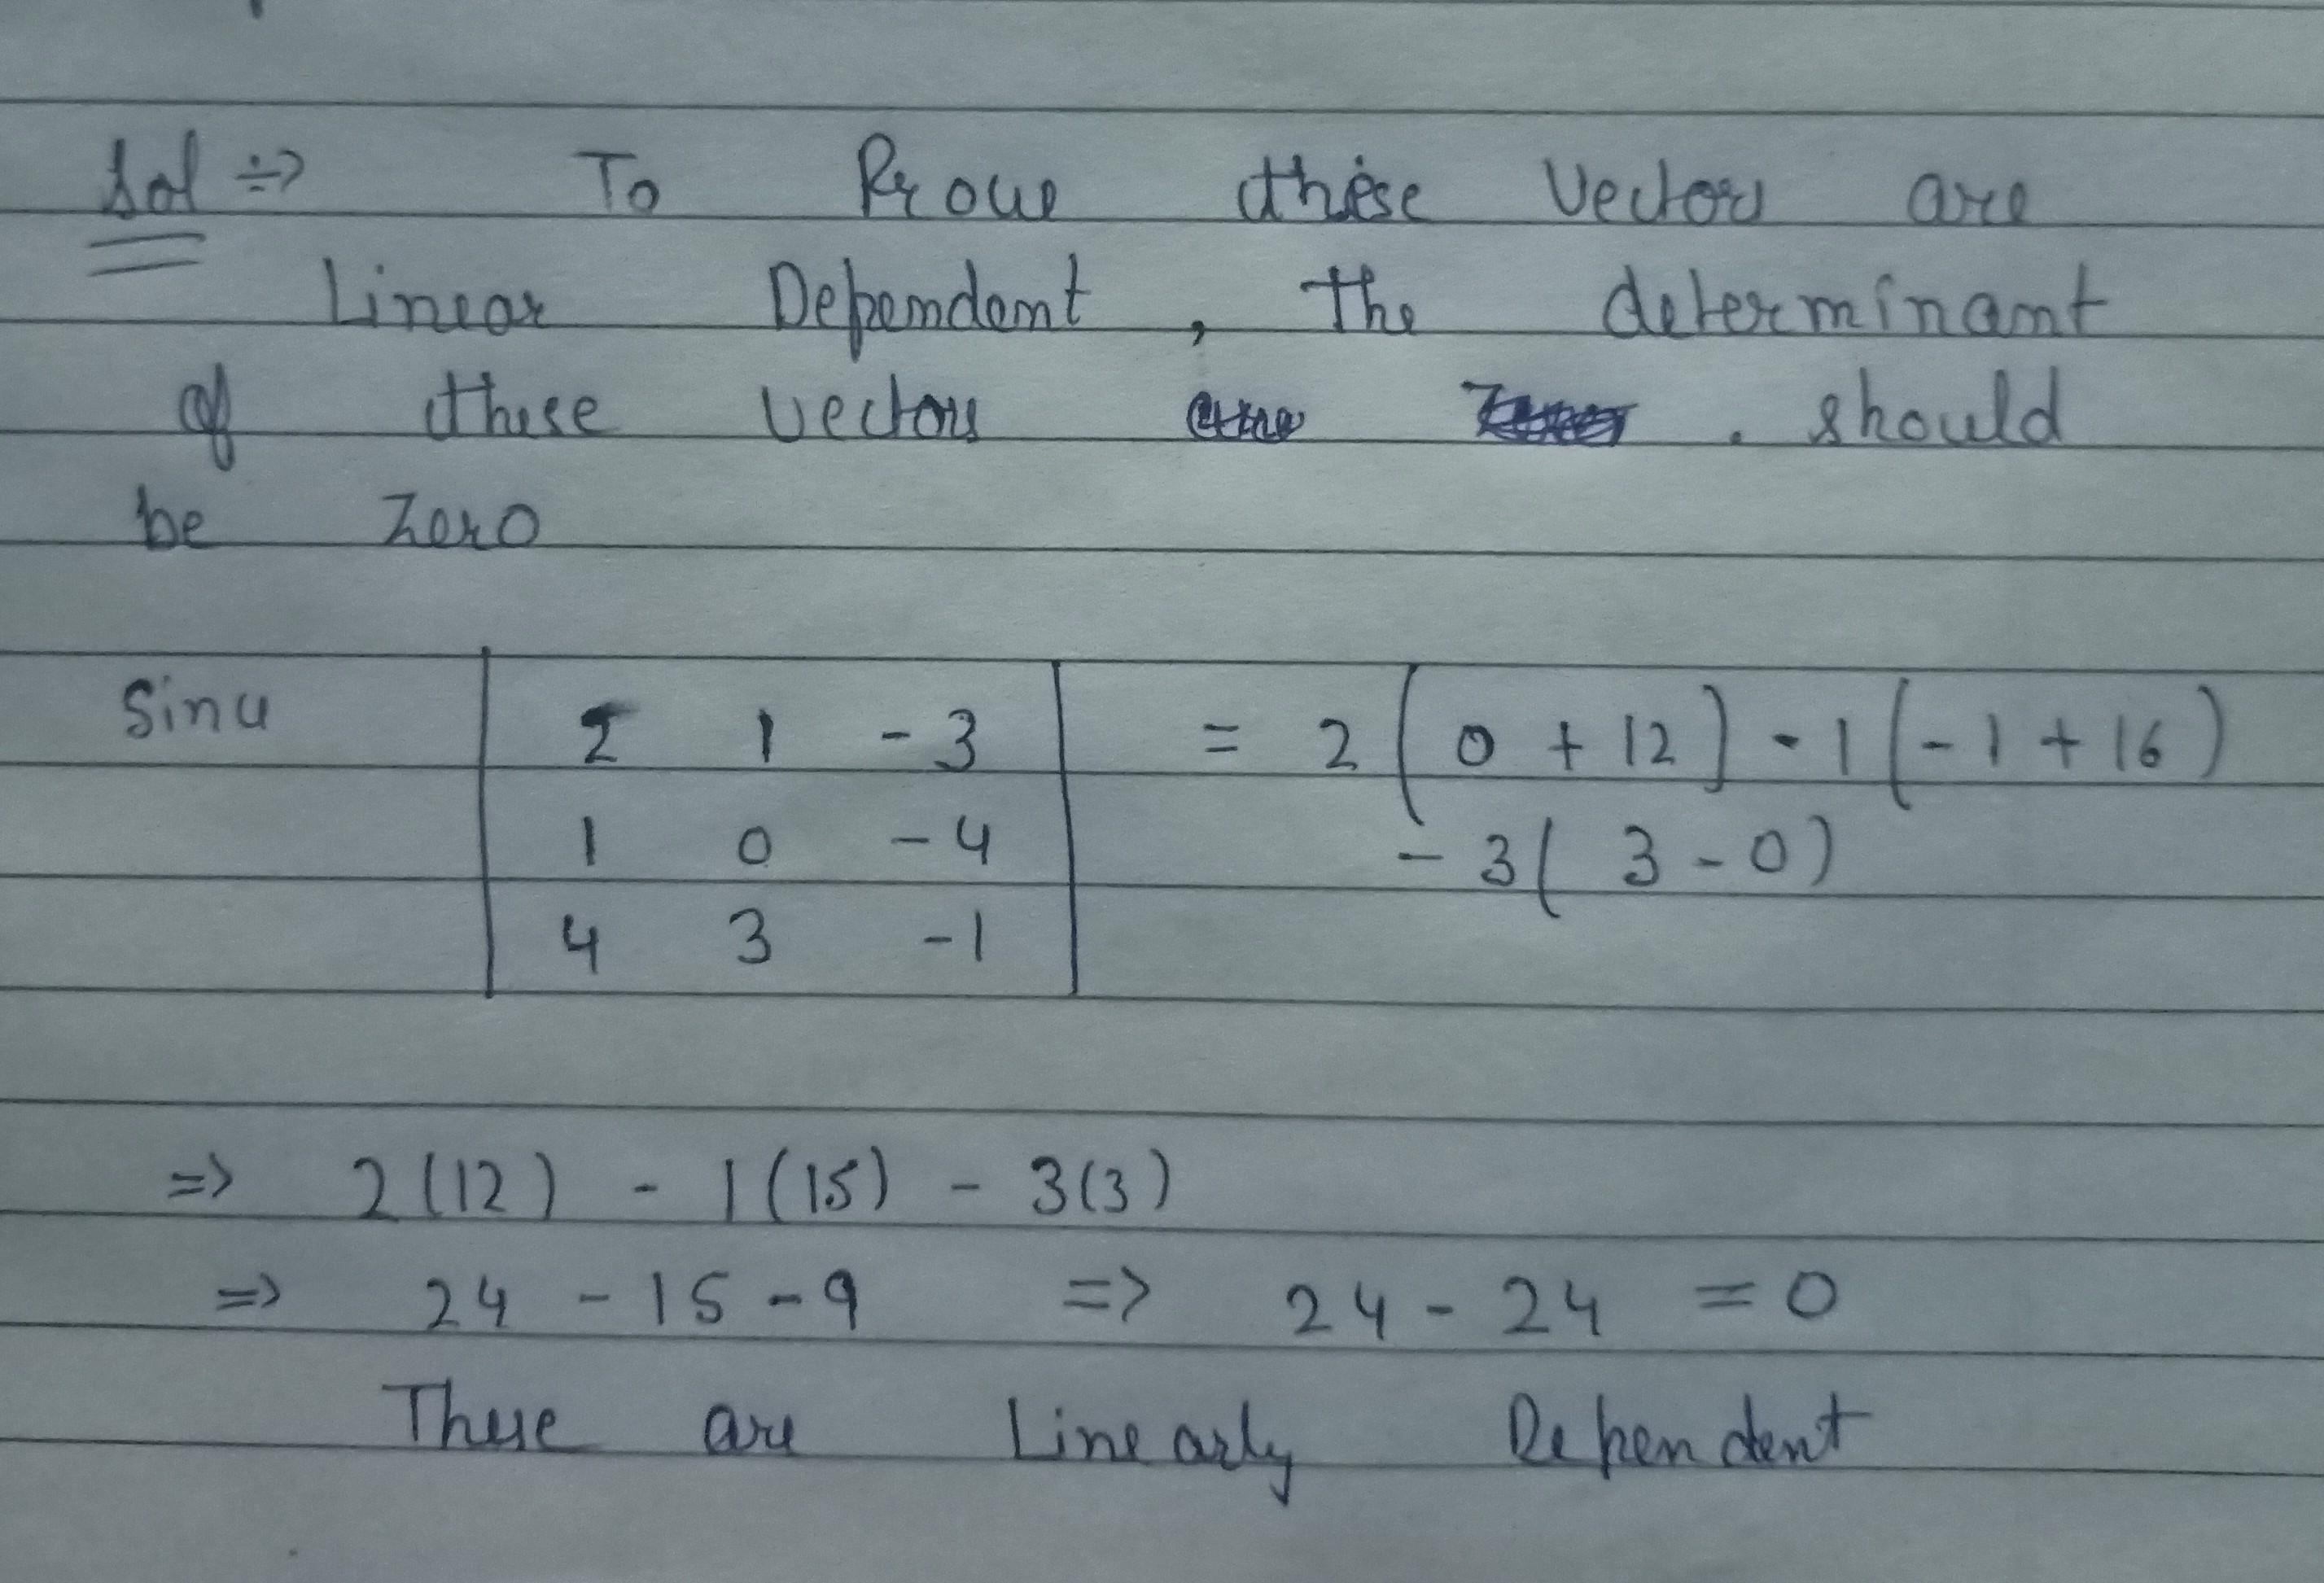 Sol ⇒ To Prove these Vectors are
Linear Dependent , the determinant
of these vectors should
be zero
Since | 2 1 -3 | = 2(0 + 12) - 1(-1 + 16)
| 1 0 -4 | - 3(3 - 0)
| 4 3 -1 |
⇒ 2(12) - 1(15) - 3(3)
⇒ 24 - 15 - 9 ⇒ 24 - 24 = 0
These are Linearly Dependent